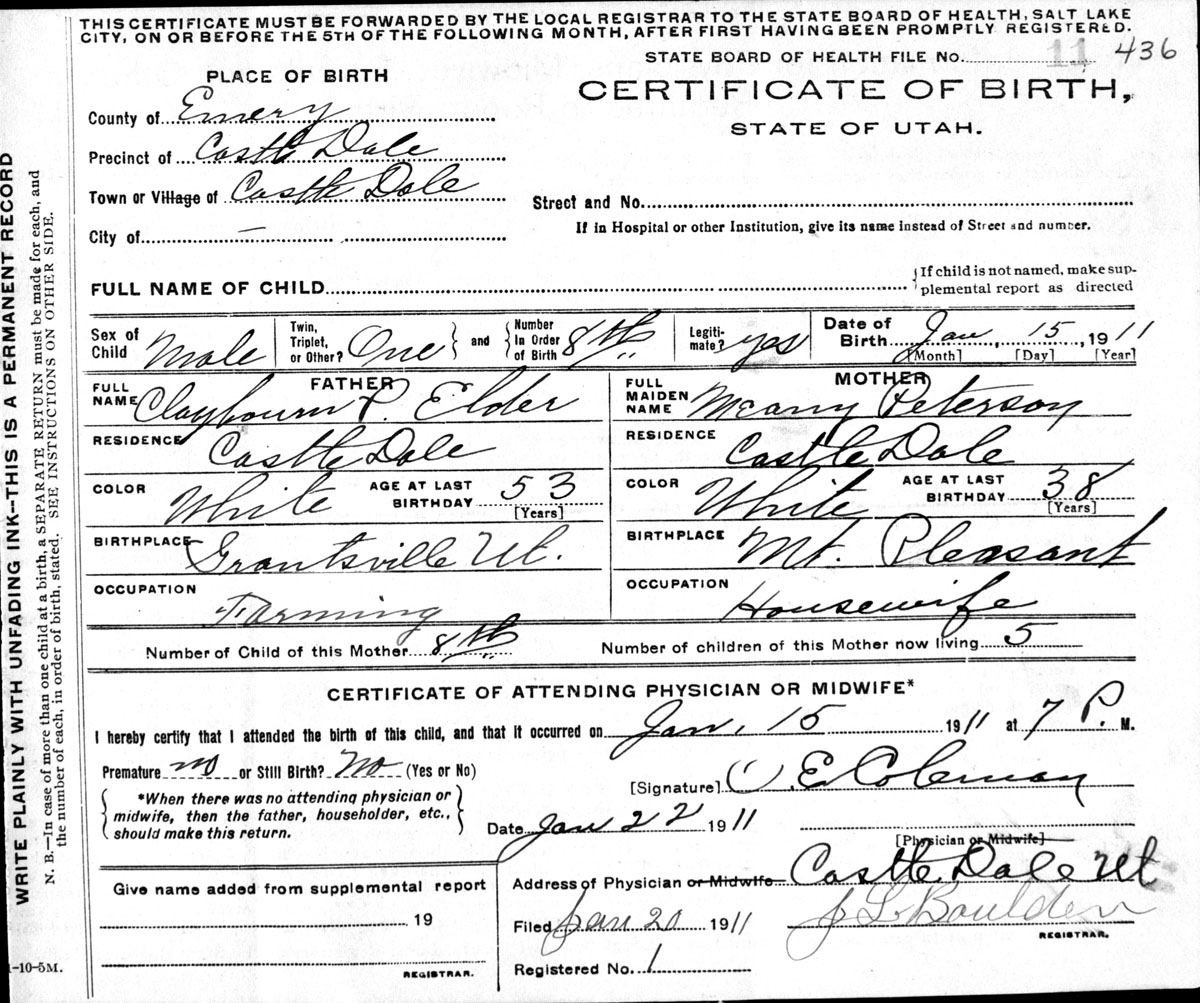 THIS CERTIFICATE MUST BE FORWARDED BY THE LOCAL REGISTRAR TO THE STATE BOARD OF HEALTH, SALT LAKE
CITY, ON OR BEFORE THE 5TH OF THE FOLLOWING MONTH, AFTER FIRST HAVING BEEN PROMPTLY REGISTERED.
STATE BOARD OF HEALTH FILE No. 11 436
PLACE OF BIRTH
CERTIFICATE OF BIRTH,
STATE OF UTAH.
County of Emery
Precinct of Castle Dale
Town or Village of Castle Dale
Street and No.
City of —
If in Hospital or other Institution, give its name instead of Street and number.
FULL NAME OF CHILD
{If child is not named, make sup-
plemental report as directed
Sex of Child Male
Twin, Triplet, or Other? One } and { Number In Order of Birth 8th
Legiti-mate? yes
Date of Birth Jan, 15, 1911
[Month] [Day] [Year]
FATHER
FULL NAME Claybourn P. Elder
RESIDENCE Castle Dale
COLOR White AGE AT LAST BIRTHDAY 53
[Years]
BIRTHPLACE Grantsville Ut.
OCCUPATION Farming
MOTHER
FULL MAIDEN NAME Meany Peterson
RESIDENCE Castle Dale
COLOR White AGE AT LAST BIRTHDAY 38
[Years]
BIRTHPLACE Mt. Pleasant
OCCUPATION Housewife
Number of Child of this Mother 8th Number of children of this Mother now living 5
CERTIFICATE OF ATTENDING PHYSICIAN OR MIDWIFE*
I hereby certify that I attended the birth of this child, and that it occurred on Jan, 15 1911 at 7 P. M.
Premature no or Still Birth? No (Yes or No)
{*When there was no attending physician or
midwife, then the father, householder, etc.,
should make this return.}
[Signature] E Coleman
Date Jan 22 1911
[Physician or Midwife]
Address of Physician or Midwife Castle Dale Ut
Give name added from supplemental report
19
REGISTRAR.
Filed Jan 20 1911 J L Boulden
REGISTRAR.
Registered No. 1
1-10-5M.
WRITE PLAINLY WITH UNFADING INK--THIS IS A PERMANENT RECORD
N. B.—In case of more than one child at a birth, a SEPARATE RETURN must be made for each, and
the number of each, in order of birth, stated. SEE INSTRUCTIONS ON OTHER SIDE.